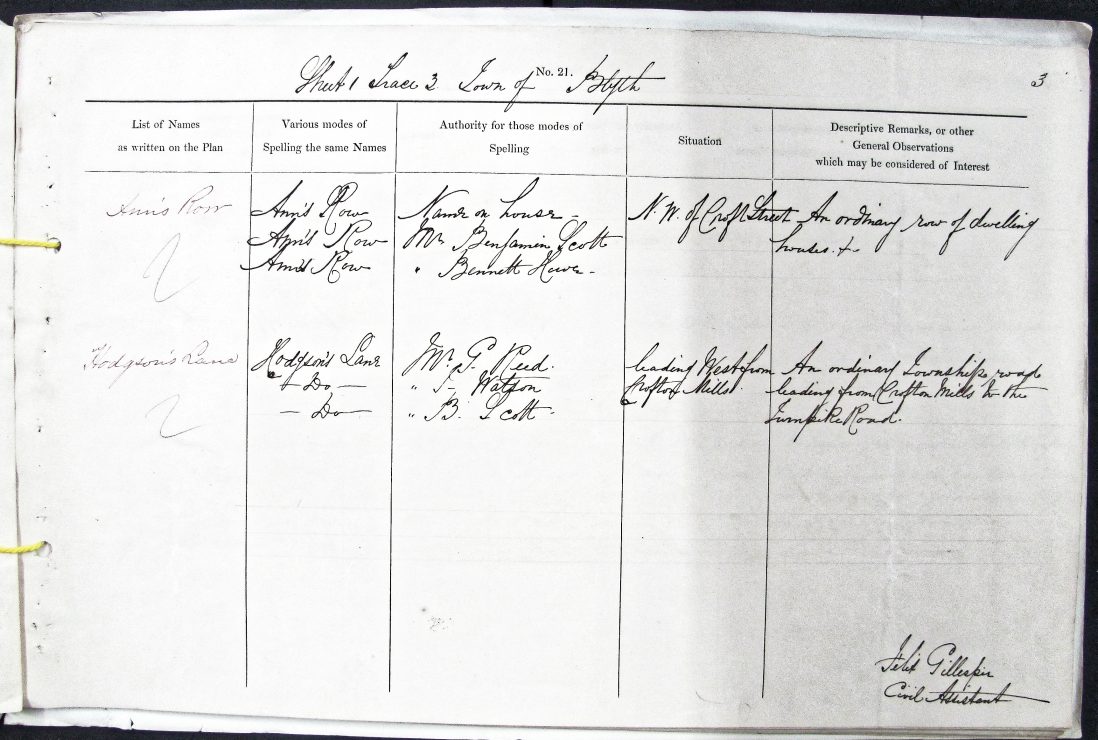 No. 21.
Sheet 1 Trace 3 Town of Blyth
3
List of Names as written on the Plan
Various modes of Spelling the same Names
Authority for those modes of Spelling
Situation
Descriptive Remarks, or other General Observations which may be considered of Interest
Ann's Row
Ann's Row
Ann's Row
Ann's Row
Name on house -
Mr. Benjamin Scott
" Bennett
N.W. of Croft Street
An ordinary row of dwelling
houses. &
Hodgson's Lane
Hodgson's Lane
- Do -
- Do -
Mr. G. Reed.
" Watson
" B. Scott
leading West from
Crofton Mills
An ordinary Township road
leading from Crofton Mills to the
Turnpike Road.
Felix Gillespie
Civil Assistant